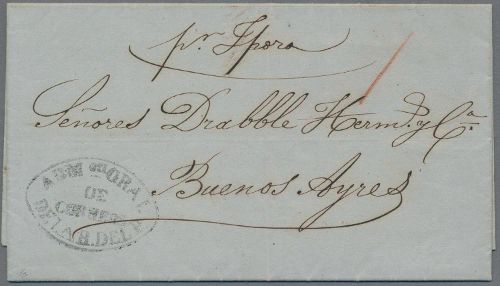 pr Ypora
Señores Drabble Hermos. y Ca.
Buenos Ayres
ADM GRAL
DE
CORREOS
DE LA R. DEL P